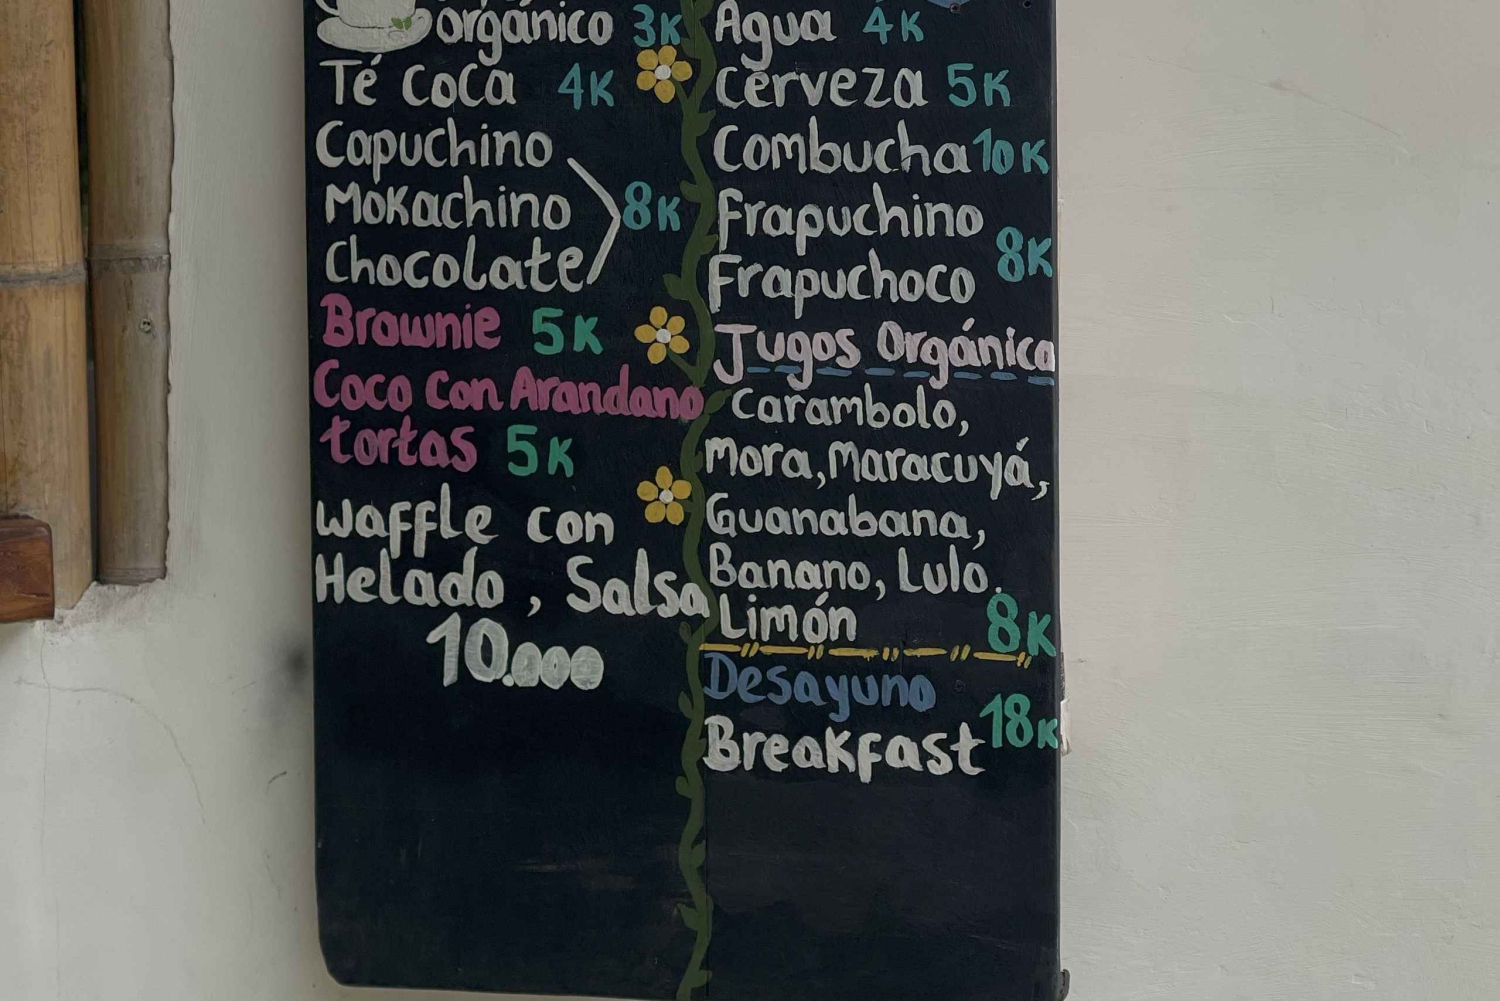 orgánico 3K
Té coca 4K
Capuchino
Mokachino 8K
Chocolate
Brownie 5K
Coco con Arandano
tortas 5K
Waffle con
Helado, Salsa
10.000
Agua 4K
Cerveza 5K
Combucha 10K
Frapuchino
8K
Frapuchoco
Jugos Orgánico
Carambolo,
Mora, Maracuyá,
Guanabana,
Banano, Lulo.
Limón 8K
Desayuno
18K
Breakfast